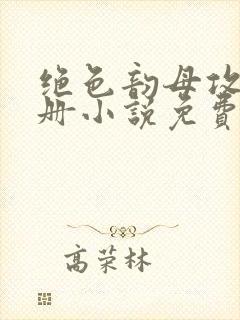 绝色韵母攻
册小说免費
高荣林